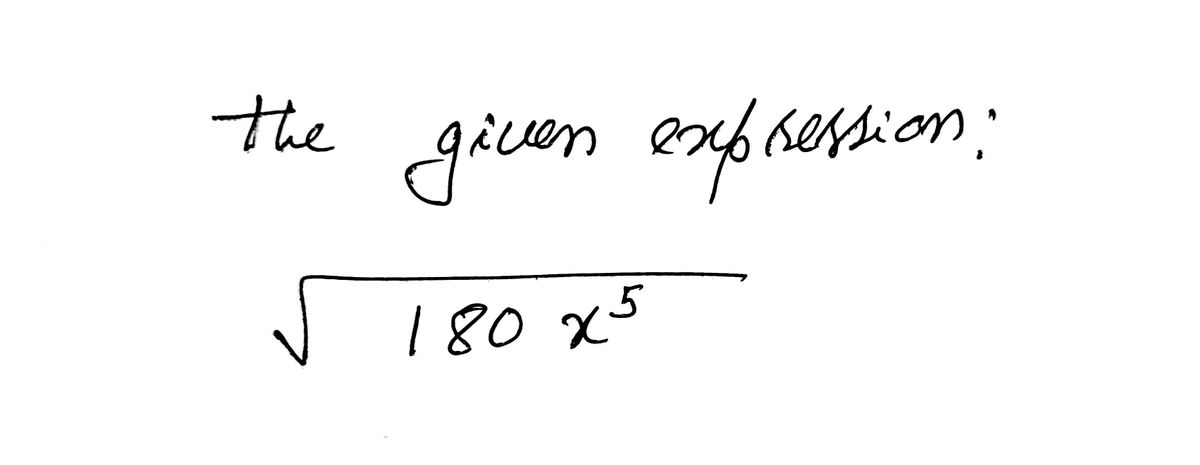 the given expression:
√180 x⁵